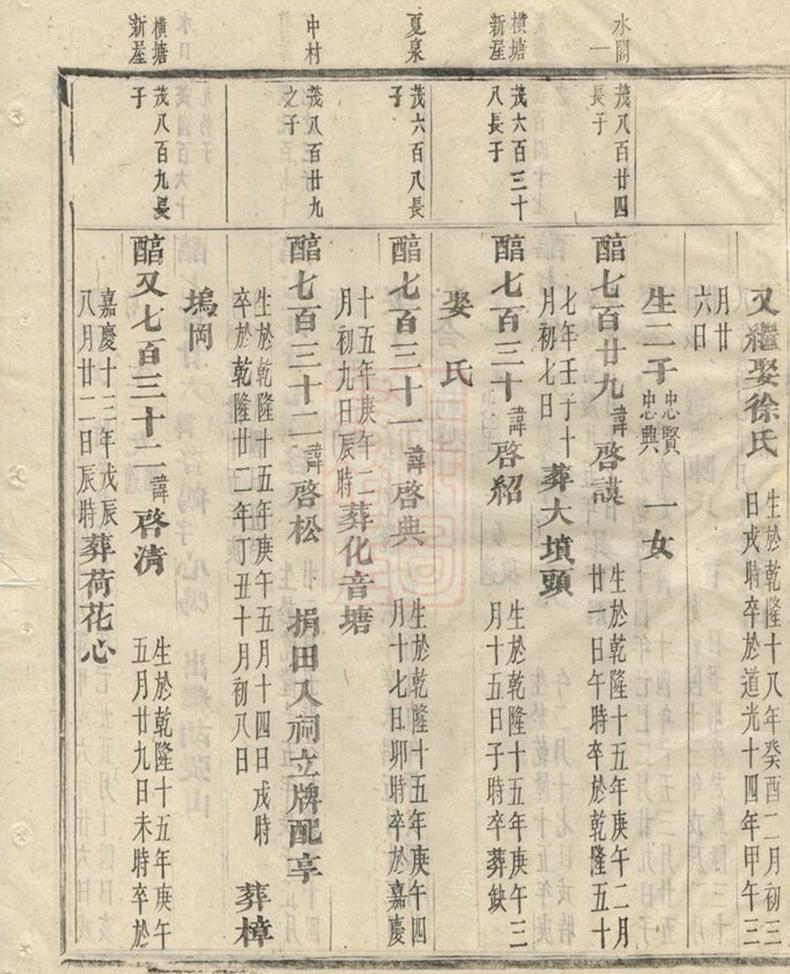 又繼娶徐氏
生於乾隆十八年癸酉二月初三
日戌時卒於道光十四年甲午三
月廿
六日
生二子
忠賢
忠典
一女
水閣
一
茂八百廿四
長子
醕七百廿九
諱
啓謨
生於乾隆十五年庚午二月
廿一日午時卒於乾隆五十
七年壬子十
月初七日
葬大墳頭
橫塘
新屋
茂六百三十
八長子
醕七百三十
諱
啓紹
生於乾隆十五年庚午三
月十五日子時卒葬缺
娶 氏
夏泉
茂六百八長
子
醕七百三十一
諱
啓典
生於乾隆十五年庚午四
月十七日卯時卒於嘉慶
十五年庚午二
月初九日辰時
葬化音塘
中村
茂八百廿九
之子
醕七百三十二
諱
啓松
捐田入祠立牌配享
生於乾隆十五年庚午五月十四日戌時
卒於乾隆廿二年丁丑十月初八日
葬樟
塢岡
橫塘
新屋
茂八百九長
子
醕又七百三十二
諱
啓清
生於乾隆十五年庚午
五月廿九日未時卒於
嘉慶十三年戊辰
八月廿二日辰時
葬荷花心